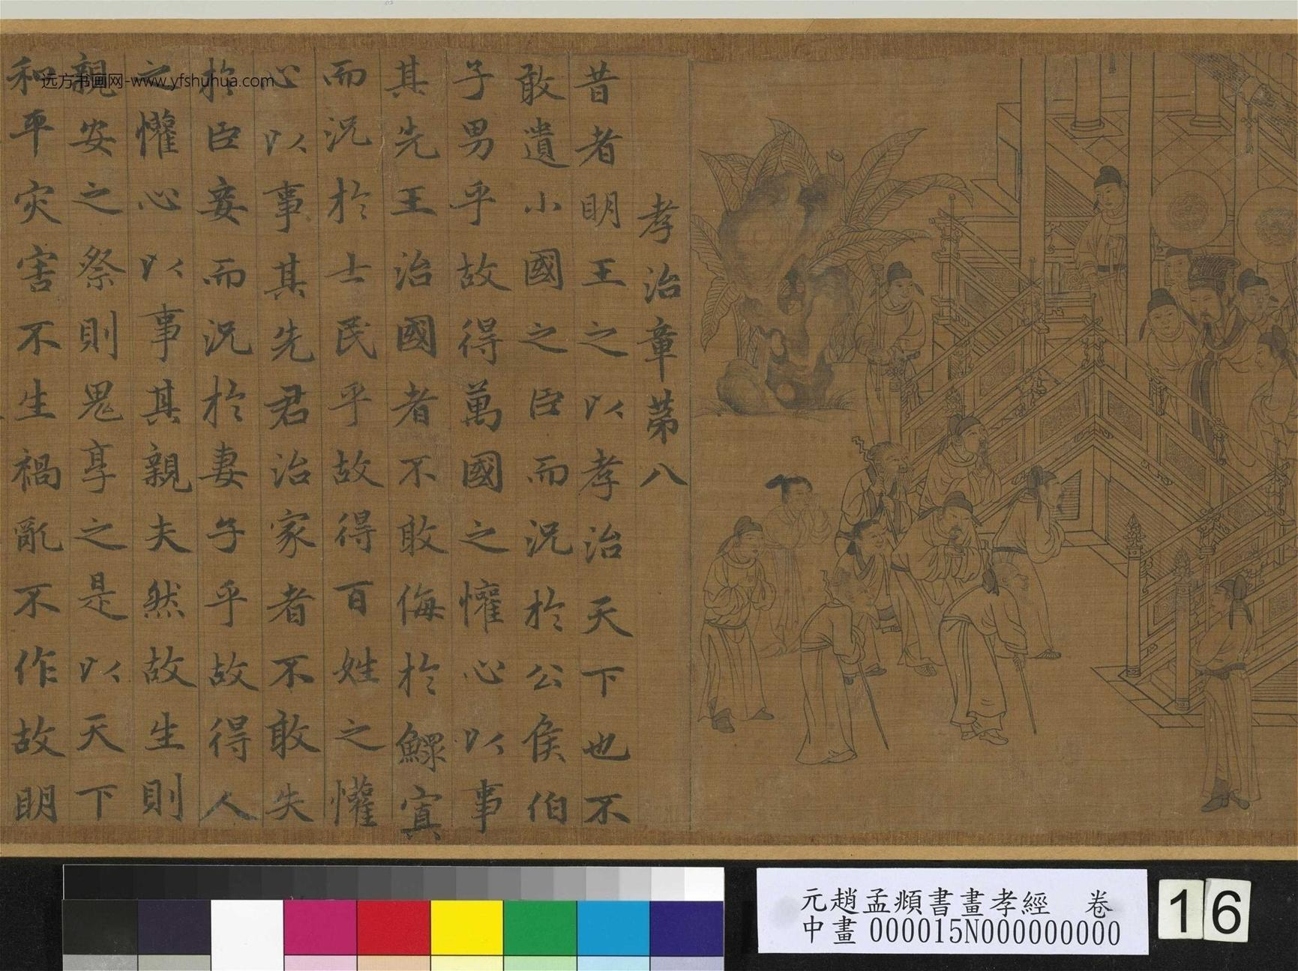 孝治章第八
昔者明王之以孝治天下也不
敢遺小國之臣而況於公侯伯
子男乎故得萬國之懽心以事
其先王治國者不敢侮於鰥寡
而況於士民乎故得百姓之懽
心以事其先君治家者不敢失
於臣妾而況於妻子乎故得人
之懽心以事其親夫然故生則
親安之祭則鬼享之是以天下
和平灾害不生禍亂不作故明
远方书画网-www.yfshuhua.com
元趙孟頫書畫孝經 卷
中畫 000015N000000000
16